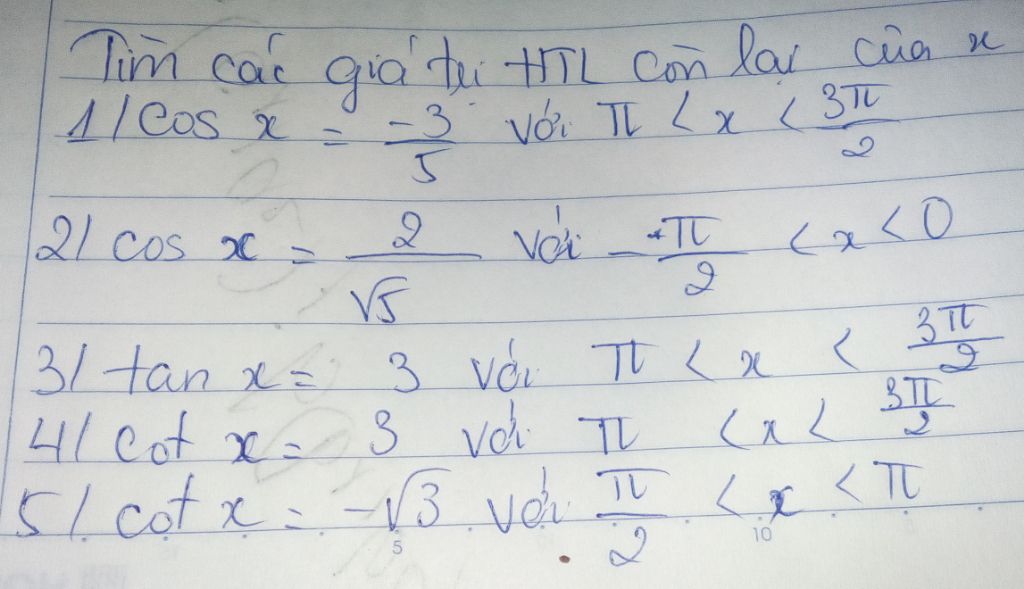 Tìm các giá trị HTL còn lại của x
1/ cos x = -3/5 với π < x < 3π/2
2/ cos x = 2/√5 với -π/2 < x < 0
3/ tan x = 3 với π < x < 3π/2
4/ cot x = 3 với π < x < 3π/2
5/ cot x = -√3 với π/2 < x < π
5 10